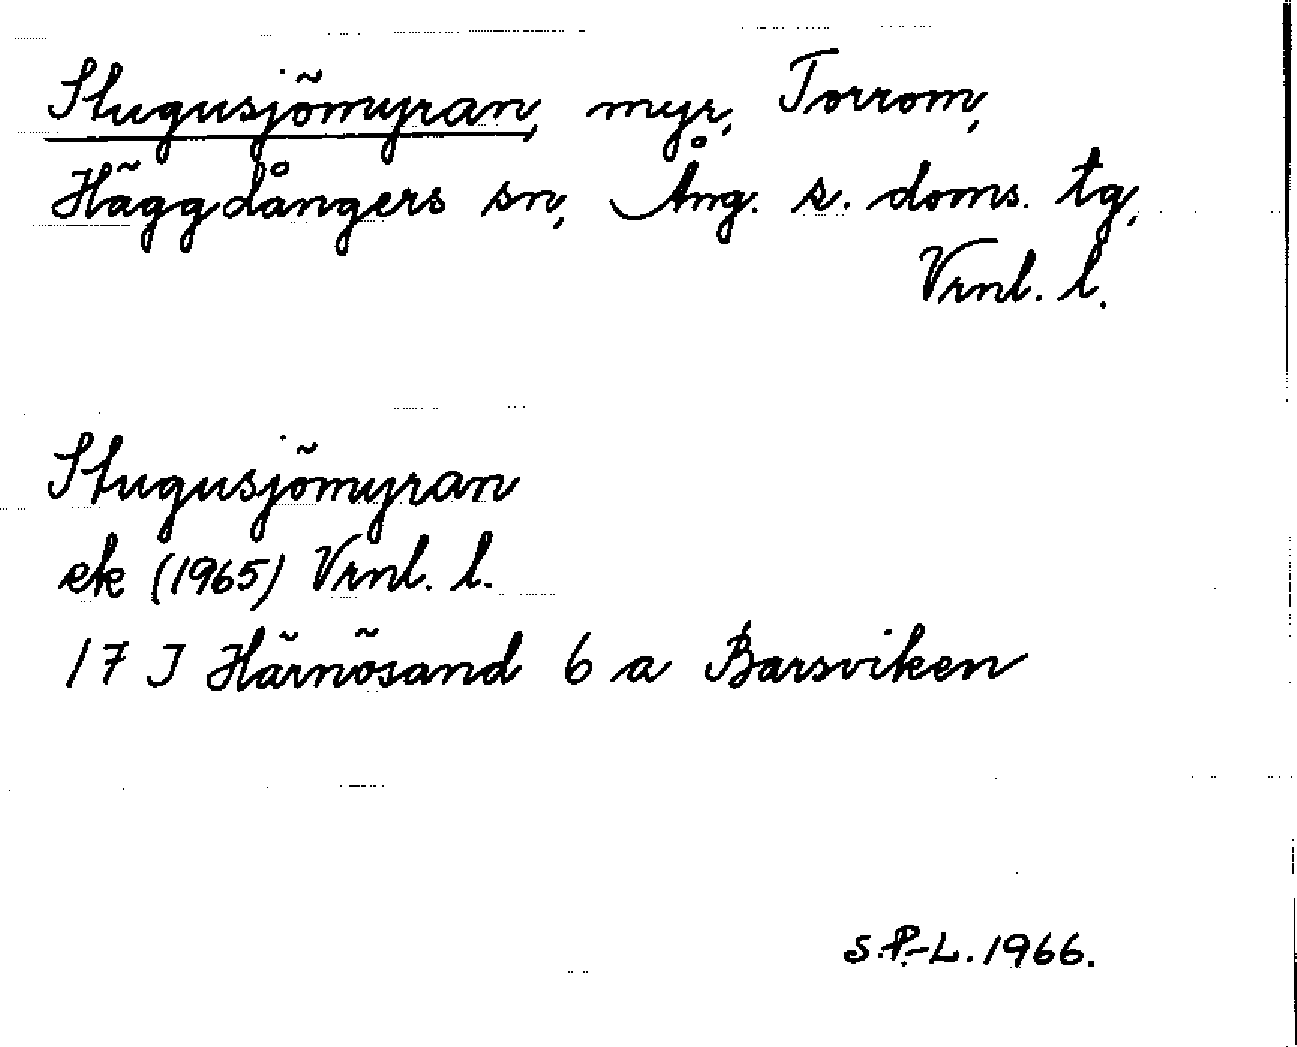 Stugusjömyran, myr, Torrom,
Häggdångers sn, Ång. s. doms. tg,
Vrnl. l.
Stugusjömyran
ek (1965) Vrnl. l.
17 J Härnösand 6 a Barsviken
S.P.-L. 1966.